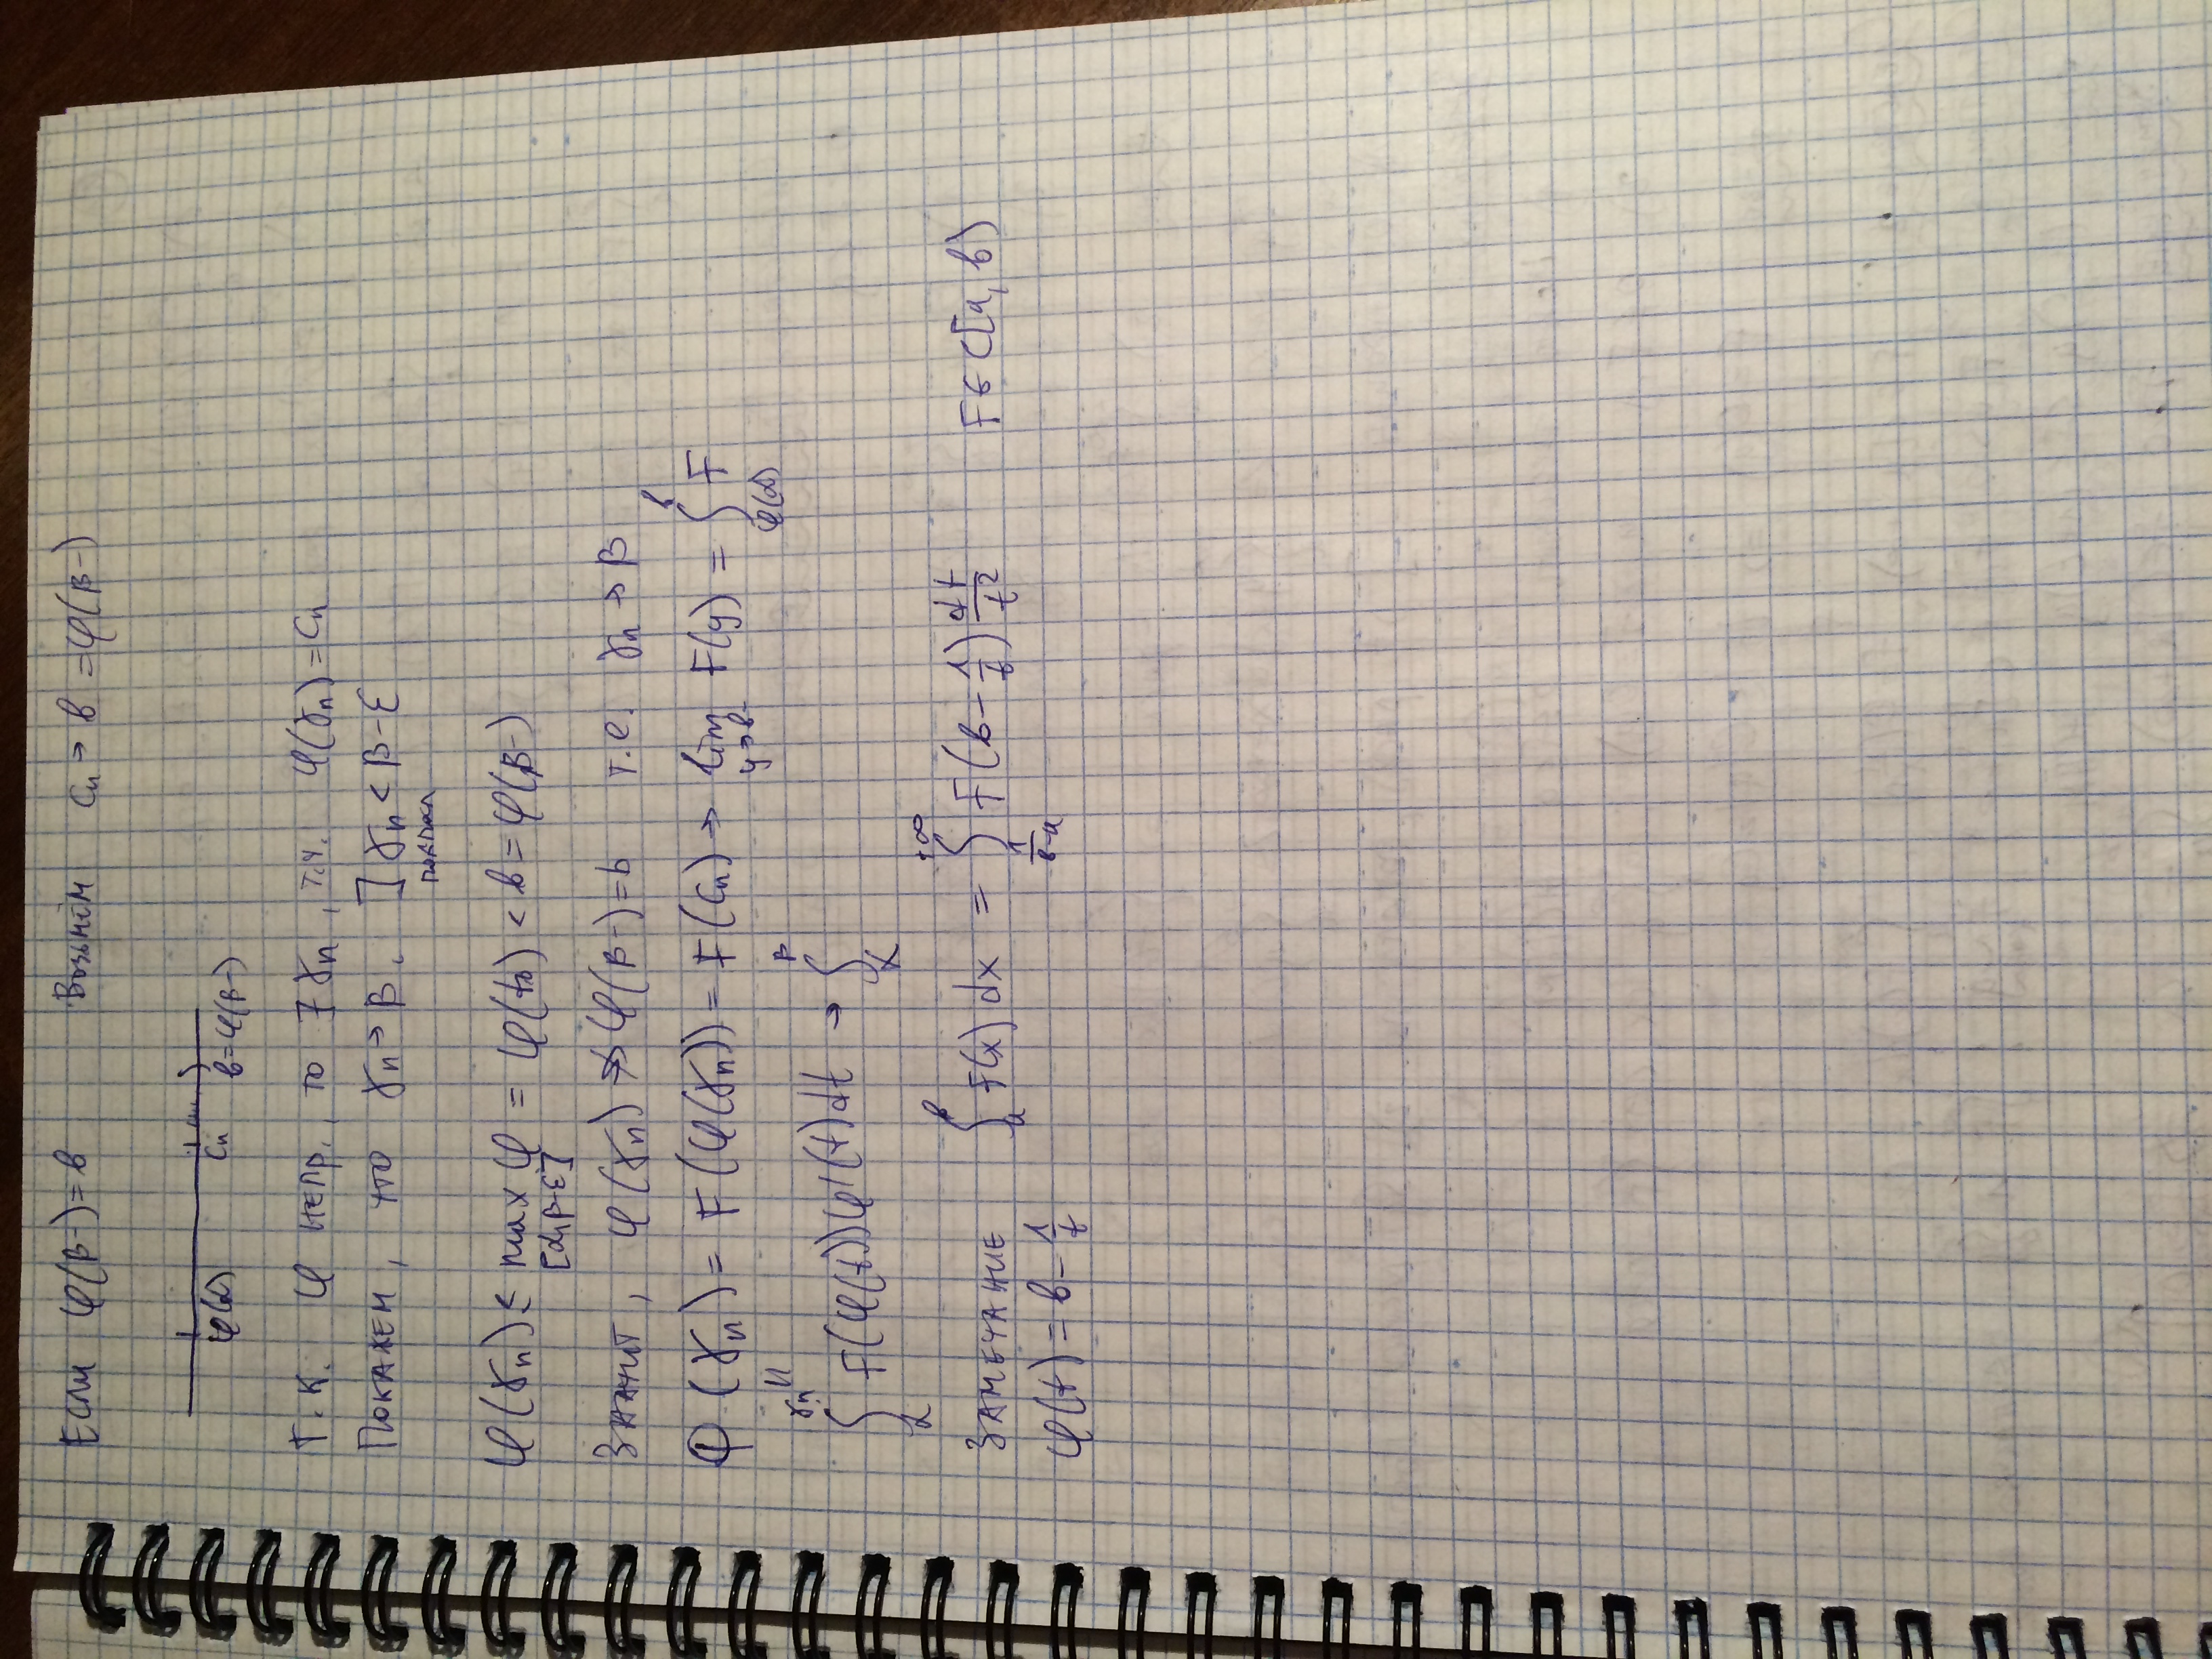 Если φ(β-) = b Возьмём cₙ → b = φ(β-)
φ(α) cₙ b = φ(β-)
Т.к. φ непр., то ∃ γₙ, т.ч. φ(γₙ) = cₙ
Покажем, что γₙ → β. ] γₙ < β - ε
φ(γₙ) ≤ max φ = φ(t₀) < b = φ(β-)
[α, β-ε]
Значит, φ(γₙ) ↛ φ(β-) = b т.е. γₙ → β
Φ(γₙ) = F(φ(γₙ)) = F(cₙ) → lim_{y→b-} F(y) = ∫_{φ(α)}^{b} F
∫_{α}^{γₙ} F(φ(t))φ'(t)dt → ∫_{α}^{β}
Замечание ∫_{a}^{b} F(x) dx = ∫_{1/(b-a)}^{+∞} F(b - 1/t) dt/t² F ∈ C[a, b)
φ(t) = b - 1/t